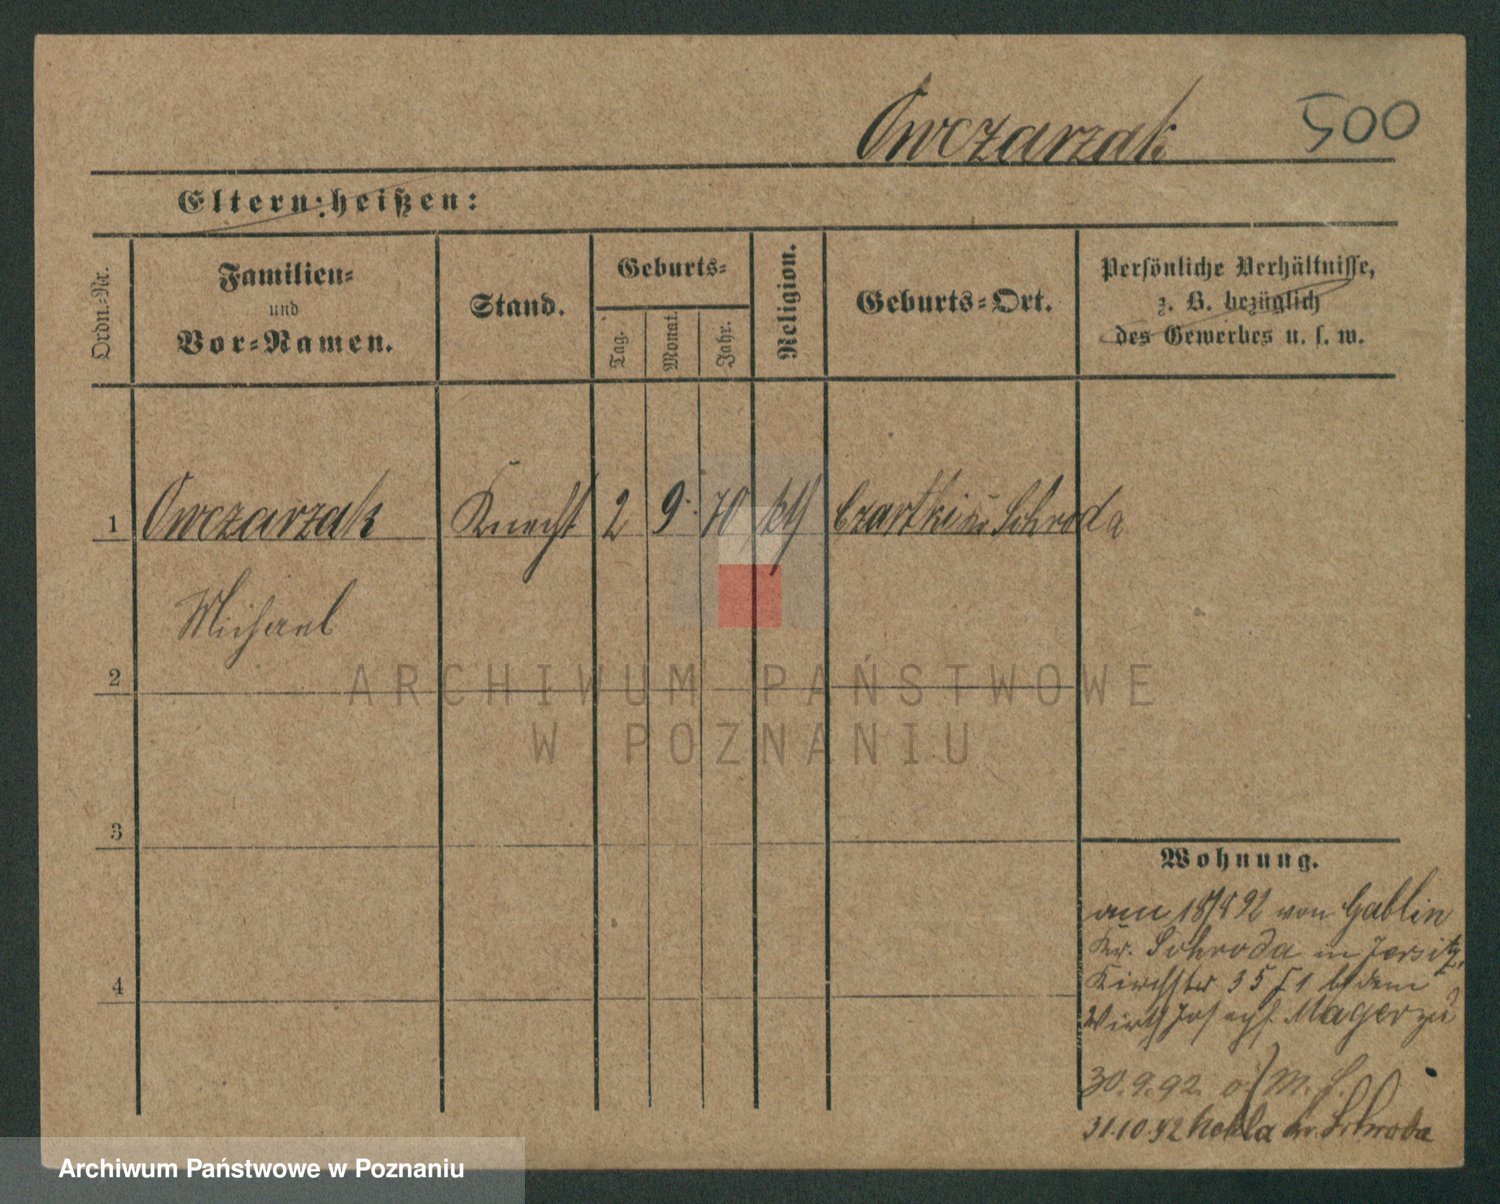 Owczarzak 500
Eltern heißen:
Ordn.-Nr.
Familien-
und
Vor-Namen.
Stand.
Geburts-
Tag.
Monat.
Jahr.
Religion.
Geburts-Ort.
Persönliche Verhältnisse,
z. B. bezüglich
des Gewerbes u. s. w.
1 Owczarzak Knecht 2 9. 70 kth Czartki Kr Schroda
Michael
2
ARCHIWUM PAŃSTWOWE
W POZNANIU
3
Wohnung.
am 18/8 92 von Gablin
Kr. Schroda in Jersitz,
4
Kirchstr 35 I b dem
Wirth Joseph Mager zu
30.9.92
31.10.92 Nekla Kr. Schroda
Archiwum Państwowe w Poznaniu